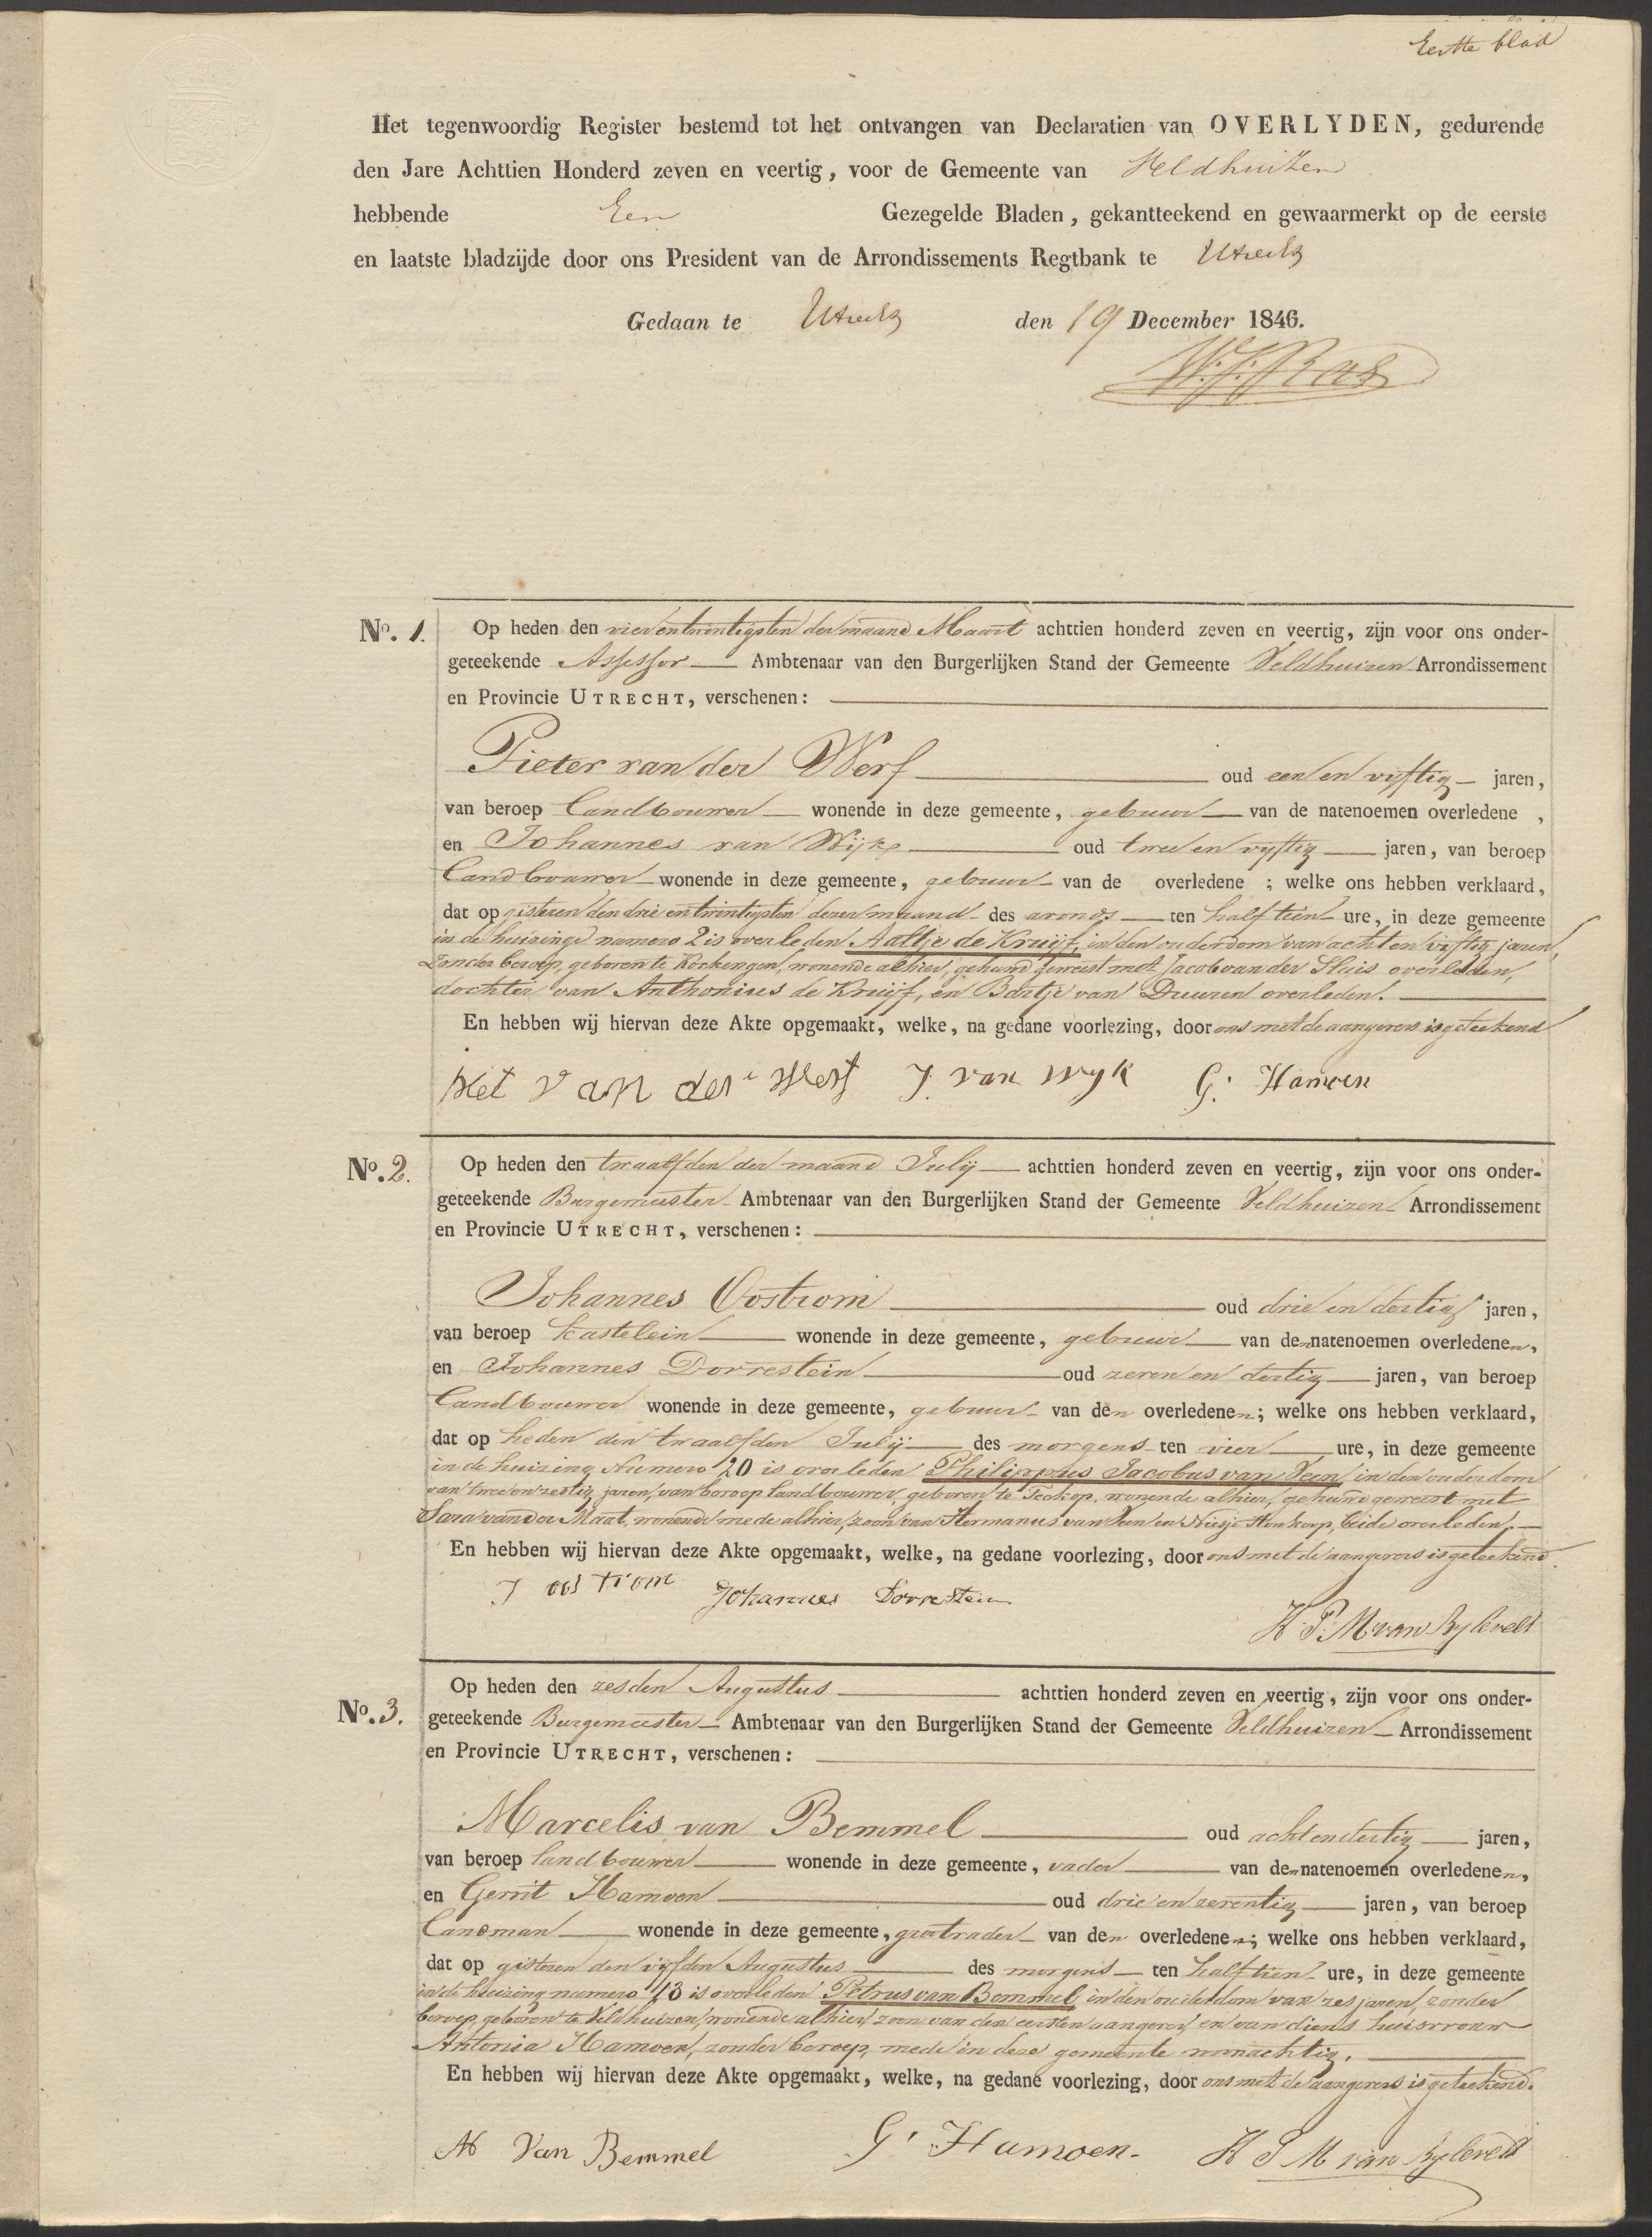 Eerste blad
Het tegenwoordig Register bestemd tot het ontvangen van Declaratien van OVERLYDEN, gedurende
den Jare Achttien Honderd zeven en veertig, voor de Gemeente van Veldhuizen
hebbende Een Gezegelde Bladen, gekantteekend en gewaarmerkt op de eerste
en laatste bladzijde door ons President van de Arrondissements Regtbank te Utrecht
Gedaan te Utrecht den 19 December 1846.
No. 1. Op heden den vier en twintigsten der maand Maart achttien honderd zeven en veertig, zijn voor ons onder-
geteekende Assessor Ambtenaar van den Burgerlijken Stand der Gemeente Veldhuizen Arrondissement
en Provincie UTRECHT, verschenen:
Pieter van der Werf oud een en vyftig jaren,
van beroep Landbouwer wonende in deze gemeente, gebuur van de natenoemen overledene,
en Johannes van Wijk oud twee en vyftig jaren, van beroep
Landbouwer wonende in deze gemeente, gebuur van de overledene; welke ons hebben verklaard,
dat op gisteren den drie en twintigsten dezer maand des avonds ten half tien ure, in deze gemeente
in de huizinge numero 2 is overleden Aaltje de Kruijf, in den ouderdom van acht en vyftig jaren,
zonder beroep, geboren te Kockengen, wonende alhier, gehuwd geweest met Jacob van der Sluis overleden,
dochter van Anthonius de Kruijf, en Bartje van Duuren overleden.
En hebben wij hiervan deze Akte opgemaakt, welke, na gedane voorlezing, door ons met de aangevers is geteekend
Piet van der Werf J. van wyk G. Hamoen
No. 2. Op heden den twaalfden der maand Julij achttien honderd zeven en veertig, zijn voor ons onder-
geteekende Burgemeester Ambtenaar van den Burgerlijken Stand der Gemeente Veldhuizen Arrondissement
en Provincie UTRECHT, verschenen:
Johannes Oostrom oud drie en dertig jaren,
van beroep kastelein wonende in deze gemeente, gebuur van den natenoemen overledenen,
en Johannes Dorrestein oud zeven en dertig jaren, van beroep
Landbouwer wonende in deze gemeente, gebuur van den overledenen; welke ons hebben verklaard,
dat op heden den twaalfden Julij des morgens ten vier ure, in deze gemeente
in de huizing Numero 20 is overleden Philippus Jacobus van Veen, in den ouderdom
van twee en zestig jaren, van beroep landbouwer, geboren te Teckop, wonende alhier, gehuwd geweest met
Sara van der Maat, wonende mede alhier, zoon van Hermanus van Veen en Niesje Honkoop, beide overleden.
En hebben wij hiervan deze Akte opgemaakt, welke, na gedane voorlezing, door ons met de aangevers is geteekend.
J oostrom Johannes Dorrestein
H. P. M van Bylevelt
No. 3. Op heden den zesden Augustus achttien honderd zeven en veertig, zijn voor ons onder-
geteekende Burgemeester Ambtenaar van den Burgerlijken Stand der Gemeente Veldhuizen Arrondissement
en Provincie UTRECHT, verschenen:
Marcelis van Bemmel oud acht en dertig jaren,
van beroep landbouwer wonende in deze gemeente, vader van den natenoemen overledenen,
en Gerrit Hamoen oud drie en zeventig jaren, van beroep
Landman wonende in deze gemeente, grootvader van den overledenen; welke ons hebben verklaard,
dat op gisteren den vyfden Augustus des morgens ten half tien ure, in deze gemeente
in de huizing numero 13 is overleden Petrus van Bemmel, in den ouderdom van zes jaren, zonder
beroep, geboren te Veldhuizen, wonende alhier, zoon van den eersten aangever, en van diens huisvrouw
Antonia Hamoen, zonder beroep, mede in deze gemeente woonachtig.
En hebben wij hiervan deze Akte opgemaakt, welke, na gedane voorlezing, door ons met de aangevers is geteekend.
M Van Bemmel G. Hamoen. H P M van Bylevelt